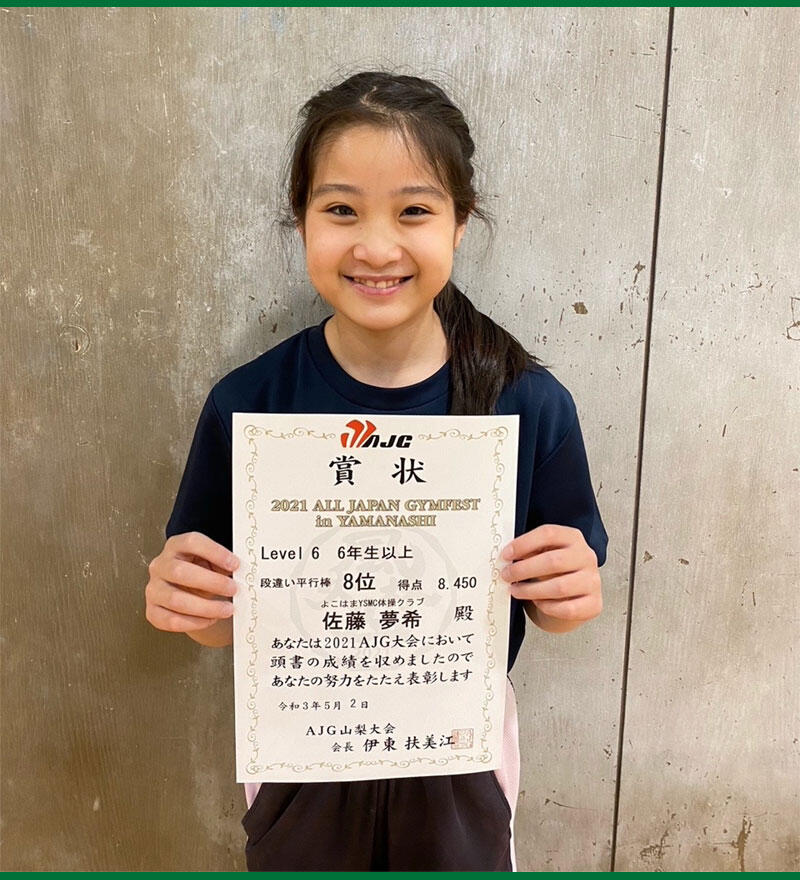 AJG
賞状
2021 ALL JAPAN GYMFEST
in YAMANASHI
Level 6 6年生以上
段違い平行棒 8位 得点 8.450
よこはまYSMC体操クラブ
佐藤 夢希 殿
あなたは2021AJG大会において
頭書の成績を収めましたので
あなたの努力をたたえ表彰します
令和3年5月 2日
AJG山梨大会
会長 伊東 扶美江